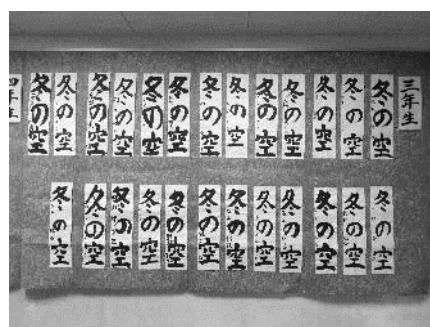 三年生
冬の空
冬の空
冬の空
冬の空
冬の空
冬の空
冬の空
冬の空
冬の空
冬の空
冬の空
冬の空
冬の空
四年生
冬の空
冬の空
冬の空
冬の空
冬の空
冬の空
冬の空
冬の空
冬の空
冬の空
冬の空
冬の空